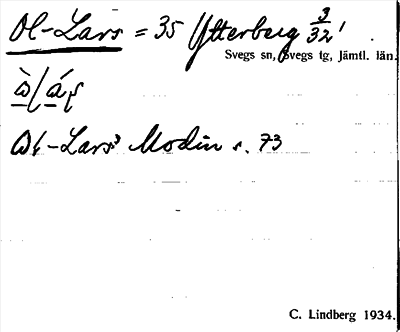 Ol-Lars = 35 Ytterberg 3/32
Svegs sn, Svegs tg, Jämtl. län.
Ol-Lars Modin s. 73
C. Lindberg 1934.